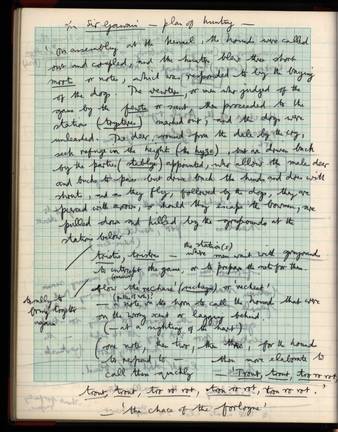 In Sir Gawain — plan of hunting —
'On assembling at the kennel, the hounds were called
out and coupled, and the hunter blew three short
mort or notes, which was responded to by the baying
of the dogs. The vewters, or men who judged of the
game by the fewte or scent then proceeded to the
station (trystere) marked out; and the dogs were
unleashed. The deer roused from the dale by the cry,
seek refuge in the heights (the hyghe), but are driven back
by the parties (stablye) appointed, who allow the male deer
and bucks to pass but drive back the hinds and does with
shouts, and as they fly, followed by the dogs, they are
pierced with arrows, or should they escape the bowmen, are
pulled down and killed by the greyhounds at the
stations below
tristis, tristres — the station(s)
where men went with greyhounds
to intercept the game, or to prepare the for them
blow the rechait (rechaye) or recheat'
— a note on the horn to call the hounds that were
on the wrong scent or lagging behind.
(— at a sighting of the hart)
(one note, then two, then three for the hounds
to respond to — then more elaborate to
call them quickly — trout, trout, tro ro rot,
trout, trout, tro ro rot, trou ro rot, trou ro rot.'
'the chace of the forloyne'
Usually to
bring together
again